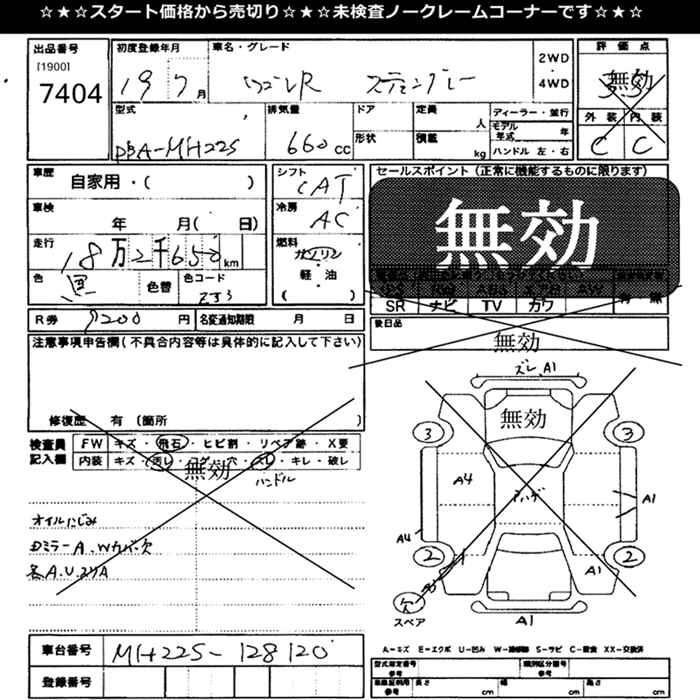 ☆★☆スタート価格から売切り☆★☆未検査ノークレームコーナーです☆★☆
出品番号 [1900] 7404
初度登録年月 19 7 月
車名・グレード ワゴンR スティングレー
2WD ・ 4WD
評価点 無効
外装 内装
C C
型式 DBA-MH22S
排気量 660 cc
ドア 形状
定員 人
積載 kg
ディーラー・並行
モデル年式 年
ハンドル 左・右
車歴 自家用・( )
車検 年 月( 日)
走行 18万2千650 km
色 色替 色コード ZJ3
シフト CAT
冷房 AC
燃料 ガソリン・軽油 ( )
セールスポイント(正常に機能するものに限ります)
無効
SR ナビ TV カワ
後日品
無効
R券 7200 円 名変通知期限 月 日
注意事項申告欄(不具合内容等は具体的に記入して下さい)
修復歴 有 (箇所
検査員記入欄
FW キズ・飛石・ヒビ割・リペア跡・X要
内装 キズ・汚レ・コゲ・穴・スレ・キレ・破レ
無効
ハンドル
オイルにじみ
Dミラー A、Wカバー欠
各A.U.スリA
ズレ、A1
無効
3 3
A4 ハゲ A1
A4
2 2
A1
欠
スペア
A1
A-キズ E-エクボ U-凹み W-補修跡 S-サビ C-腐食 XX-交換済
車台番号 MH22S-128120
登録番号
型式指定番号 参考
類別区分番号 参考
長さ cm 幅 cm 高さ cm